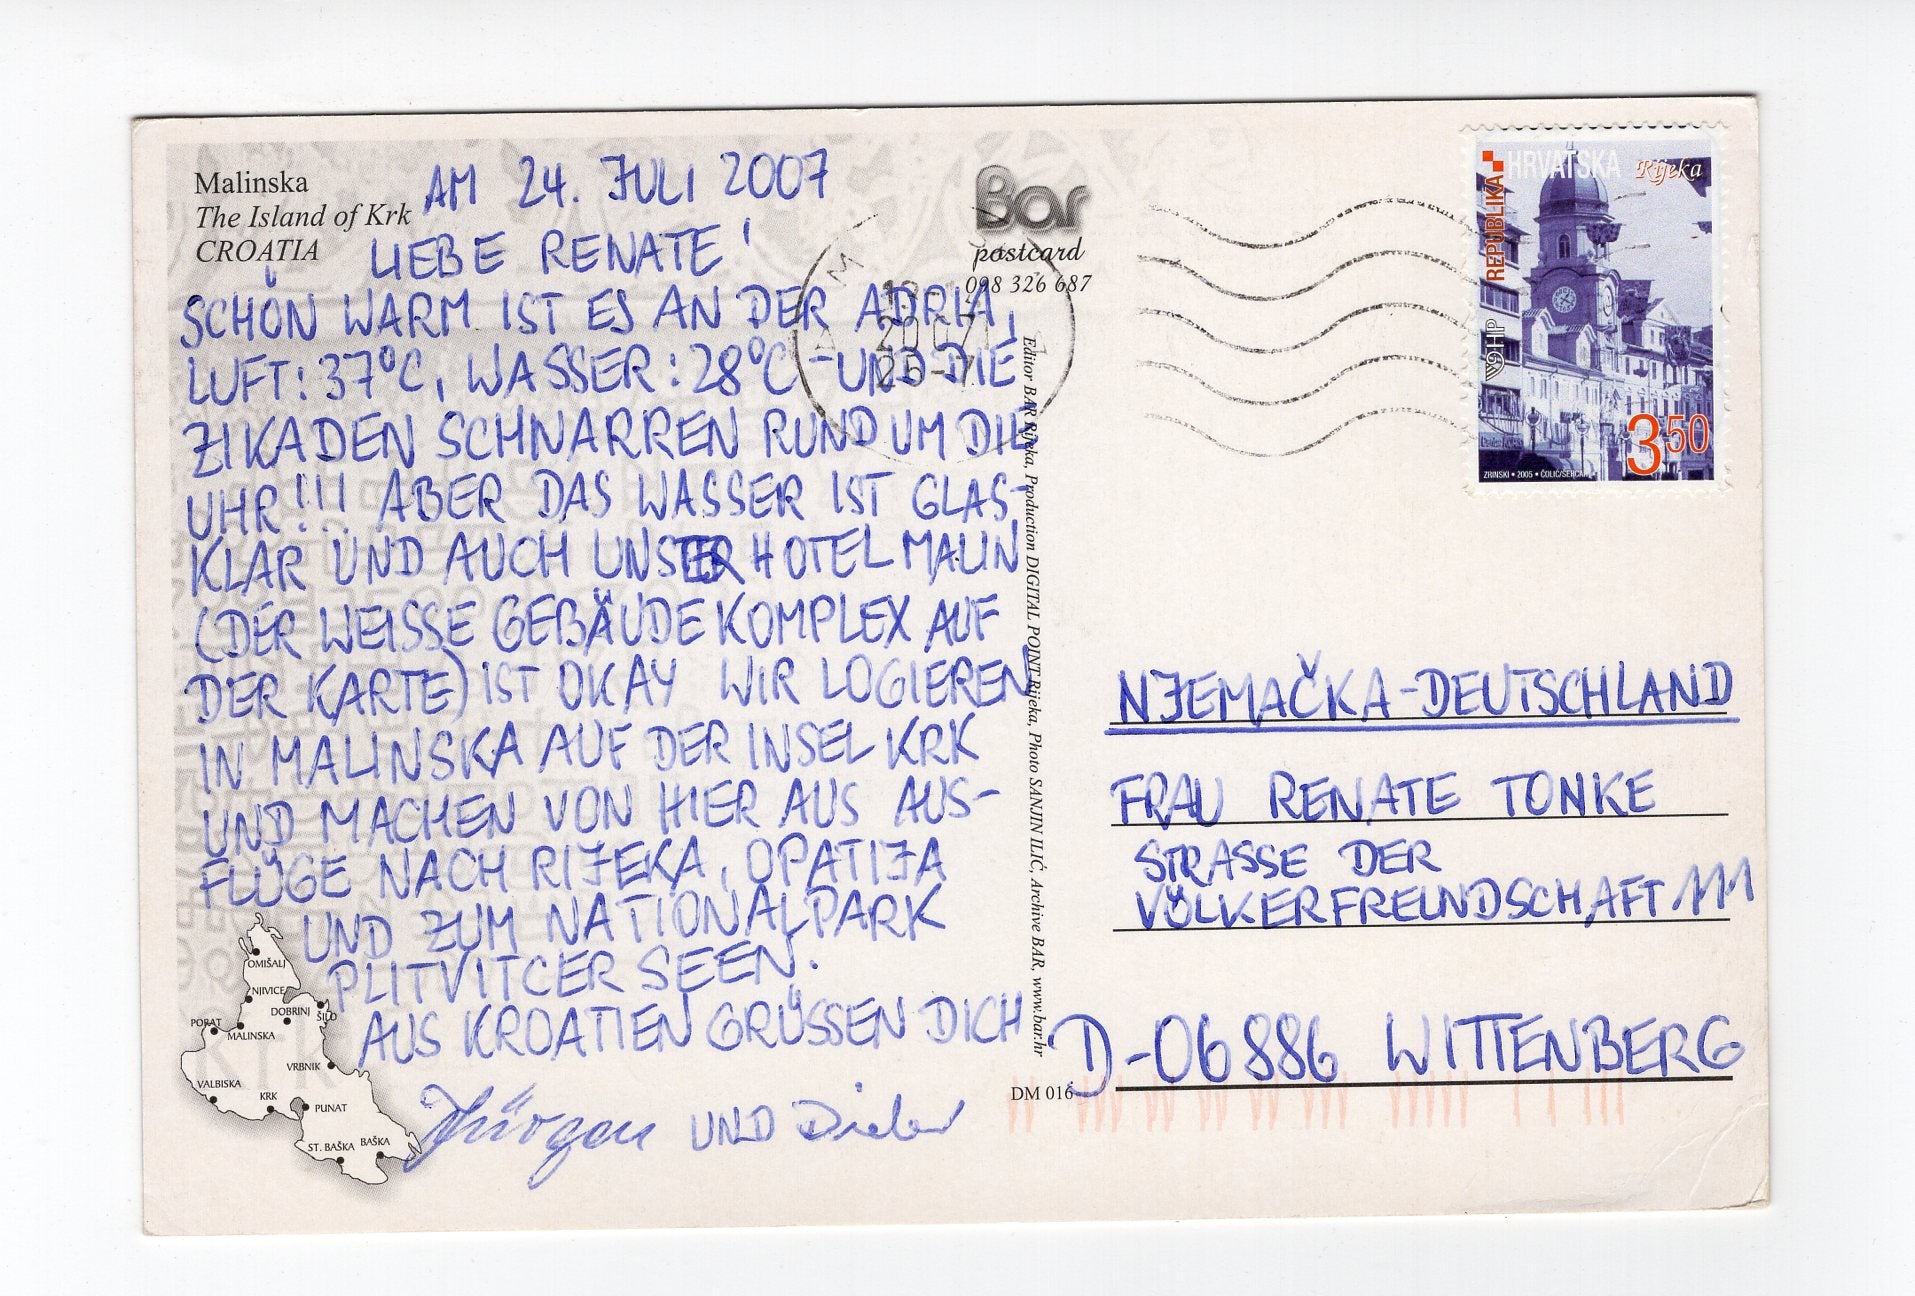 Malinska
The Island of Krk
CROATIA
AM 24. JULI 2007
LIEBE RENATE!
SCHÖN WARM IST ES AN DER ADRIA,
LUFT: 37°C, WASSER: 28°C - UND DIE
ZIKADEN SCHNARREN RUND UM DIE
UHR!!! ABER DAS WASSER IST GLAS-
KLAR UND AUCH UNSER HOTEL MALIN
(DER WEISSE GEBÄUDEKOMPLEX AUF
DER KARTE) IST OKAY WIR LOGIEREN
IN MALINSKA AUF DER INSEL KRK
UND MACHEN VON HIER AUS AUS-
FLÜGE NACH RIJEKA, OPATIJA
UND ZUM NATIONALPARK
PLITVITCER SEEN.
AUS KROATIEN GRÜSSEN DICH
Jürgen UND Dieter
OMIŠALJ
NJIVICE
DOBRINJ
ŠILO
PORAT
MALINSKA
VRBNIK
VALBISKA
KRK
PUNAT
ST. BAŠKA
BAŠKA
Bar
postcard
098 326 687
2007
26-7
Editor BAR Rijeka, Production DIGITAL POINT Rijeka, Photo SANJIN ILIĆ, Archive BAR, www.bar.hr
DM 016
REPUBLIKA
HRVATSKA
Rijeka
HP
3,50
ZRINSKI • 2005 • ČOLIĆ/SERČAR
NJEMAČKA-DEUTSCHLAND
FRAU RENATE TONKE
STRASSE DER
VÖLKERFREUNDSCHAFT 111
D-06886 WITTENBERG